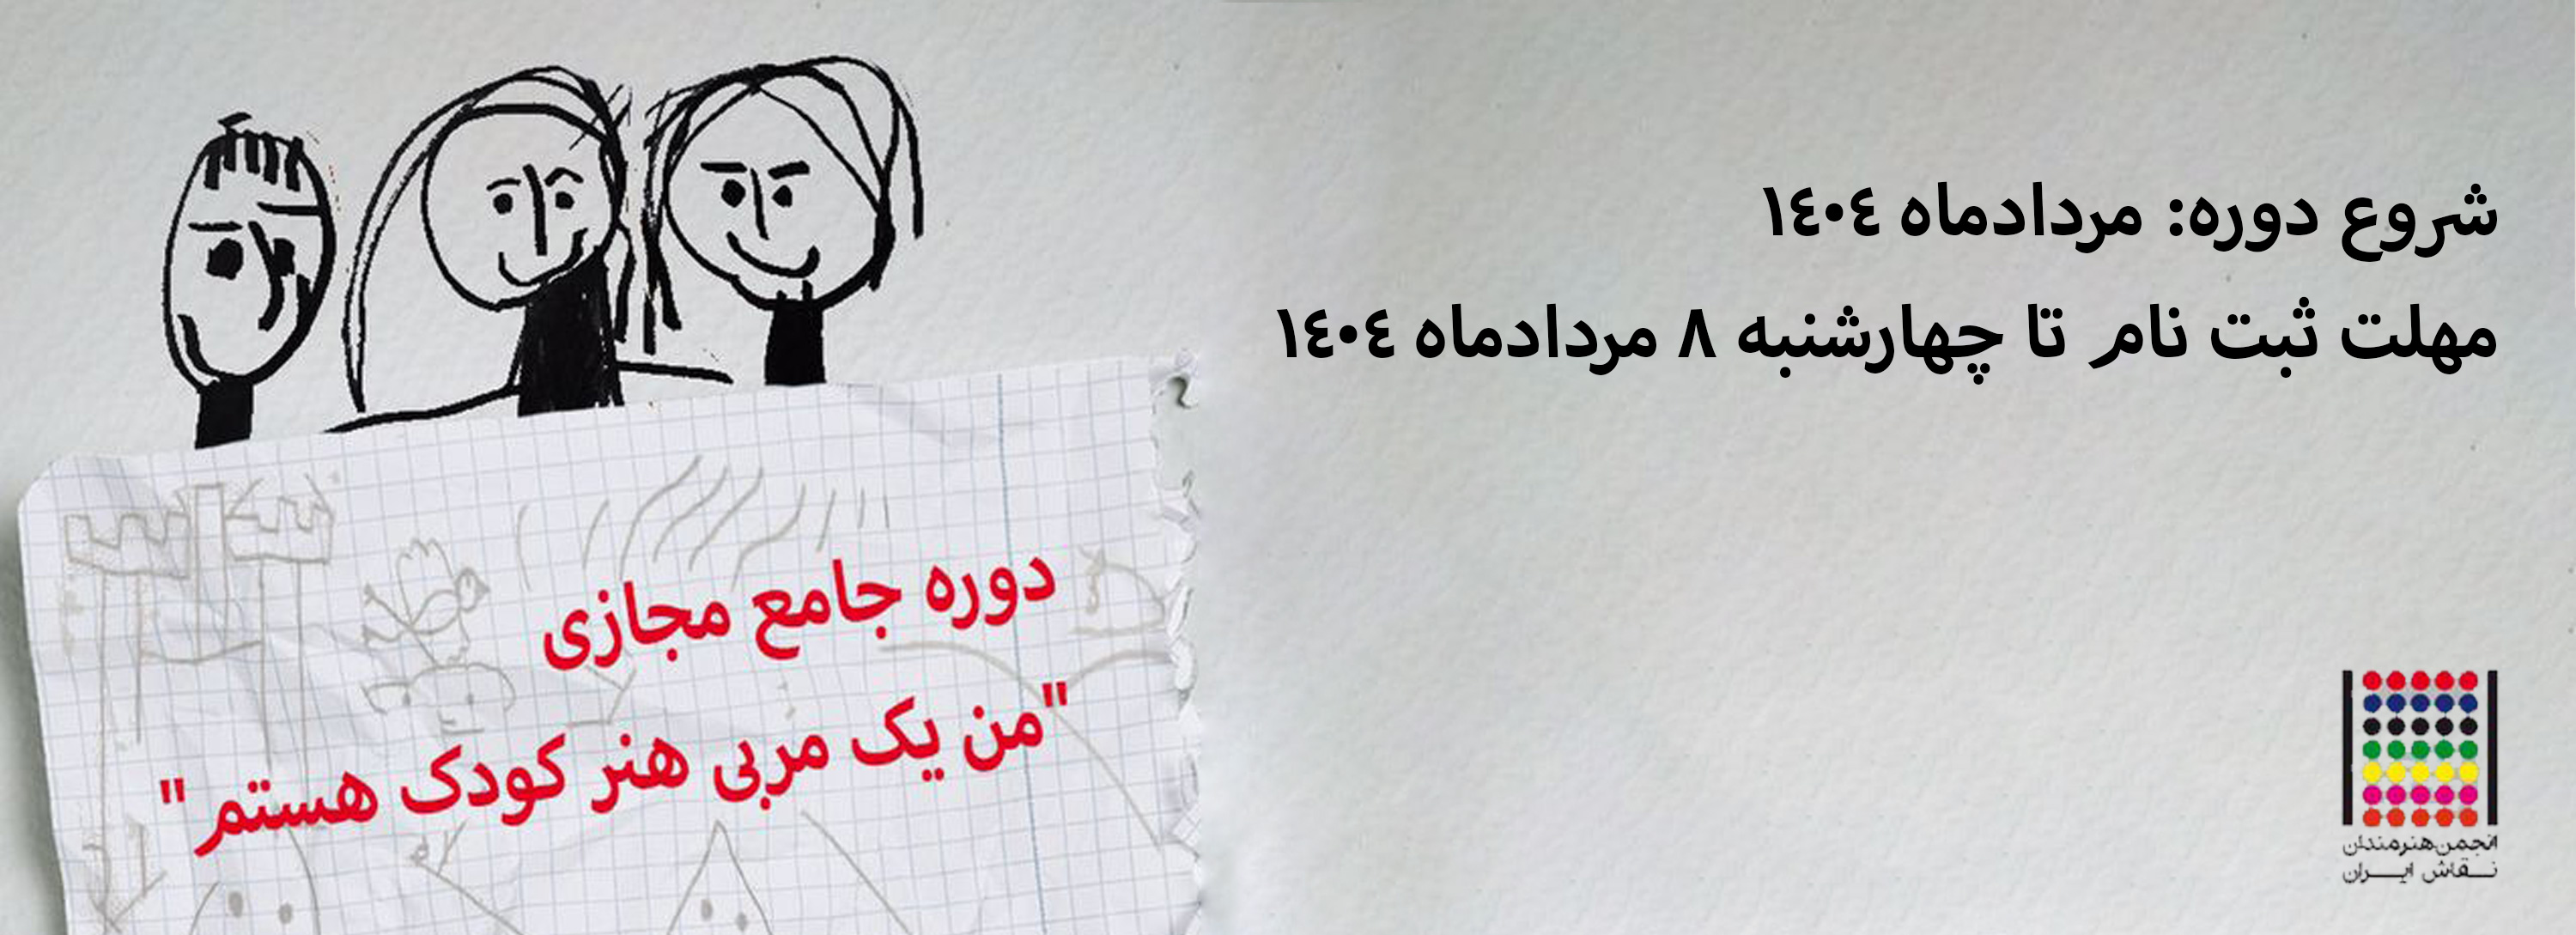 شروع دوره: مردادماه ١٤٠٤
مهلت ثبت نام تا چهارشنبه ٨ مردادماه ١٤٠٤
دوره جامع مجازی
"من یک مربی هنر کودک هستم"
انجمن هنرمندان
نقاش ایران